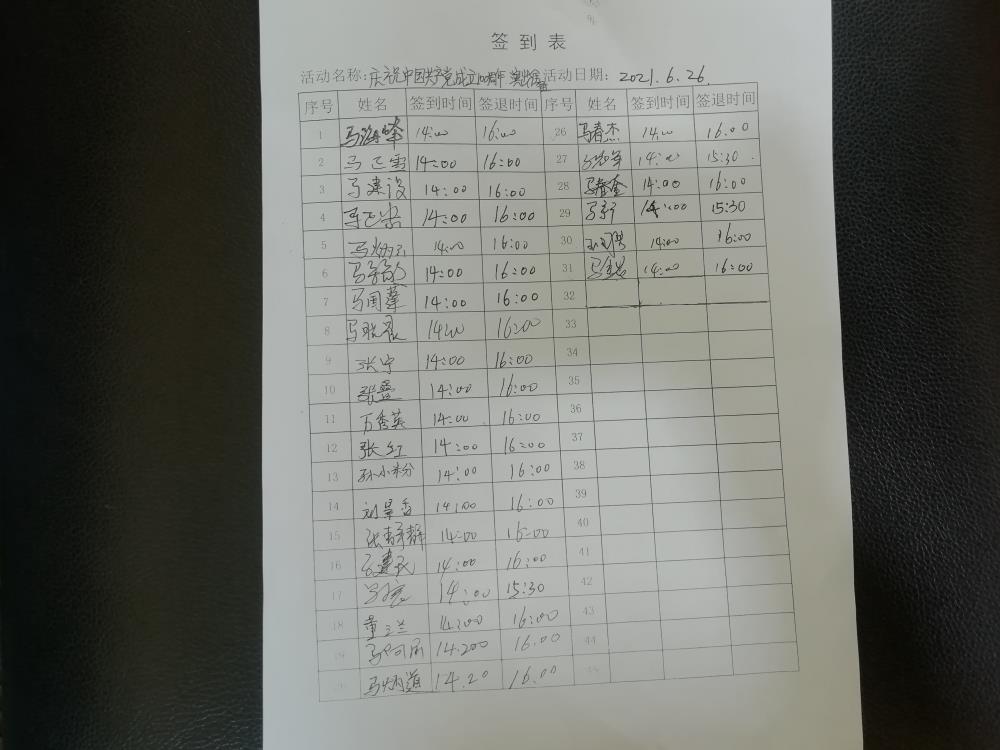 签到表
活动名称:庆祝中国共产党成立100周年 活动日期: 2021.6.26.
序号 姓名 签到时间 签退时间 序号 姓名 签到时间 签退时间
1 马海峰 14:00 16:00 26 马春杰 14:00 16.00
2 马正雷 14:00 16:00 27 14:00 15:30
3 马建设 14:00 16:00 28 马春奎 14:00 16:00
4 14:00 16:00 29 14:00 15:30
5 14:00 16:00 30 14:00 16:00
6 14:00 16:00 31 14:00 16:00
7 马国華 14:00 16:00 32
8 14:00 16:00 33
9 张宁 14:00 16:00 34
10 14:00 16:00 35
11 万秀英 14:00 16:00 36
12 张红 14:00 16:00 37
13 孙小粉 14:00 16:00 38
14 刘景香 14:00 16:00 39
15 张静静 14:00 16:00 40
16 14:00 16:00 41
17 14:00 15:30 42
18 董三兰 14:00 16:00 43
19 14.200 16.00 44
20 14.20 16.00 45